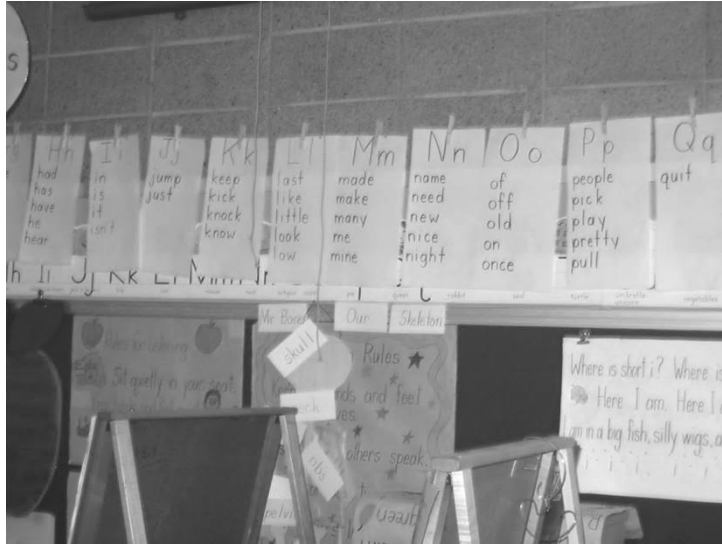 s
Hh
had
has
have
he
hear
Ii
in
is
it
isn't
Jj
jump
just
Kk
keep
kick
knock
know
Ll
last
like
little
look
low
Mm
made
make
many
me
mine
Nn
name
need
new
nice
night
Oo
of
off
old
on
once
Pp
people
pick
play
pretty
pull
Qq
quit
Ii Jj Kk Ll Mm
queen rabbit
turtle umbrella
vegetables
Mr Our Skeleton
skull
Rules for listening
Sit quietly in your seat.
Rules
and feel
others speak.
green
Where is short i? Where is
Here I am. Here I
am in a big fish, silly wigs, a